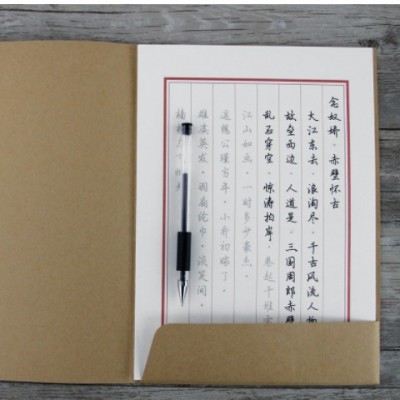 念奴娇·赤壁怀古
大江东去，浪淘尽，千古风流人物
故垒西边，人道是，三国周郎赤壁
乱石穿空，惊涛拍岸，卷起千堆
江山如画，一时多少豪杰。
遥想公瑾当年，小乔初嫁了，
雄姿英发。羽扇纶巾，谈笑间，